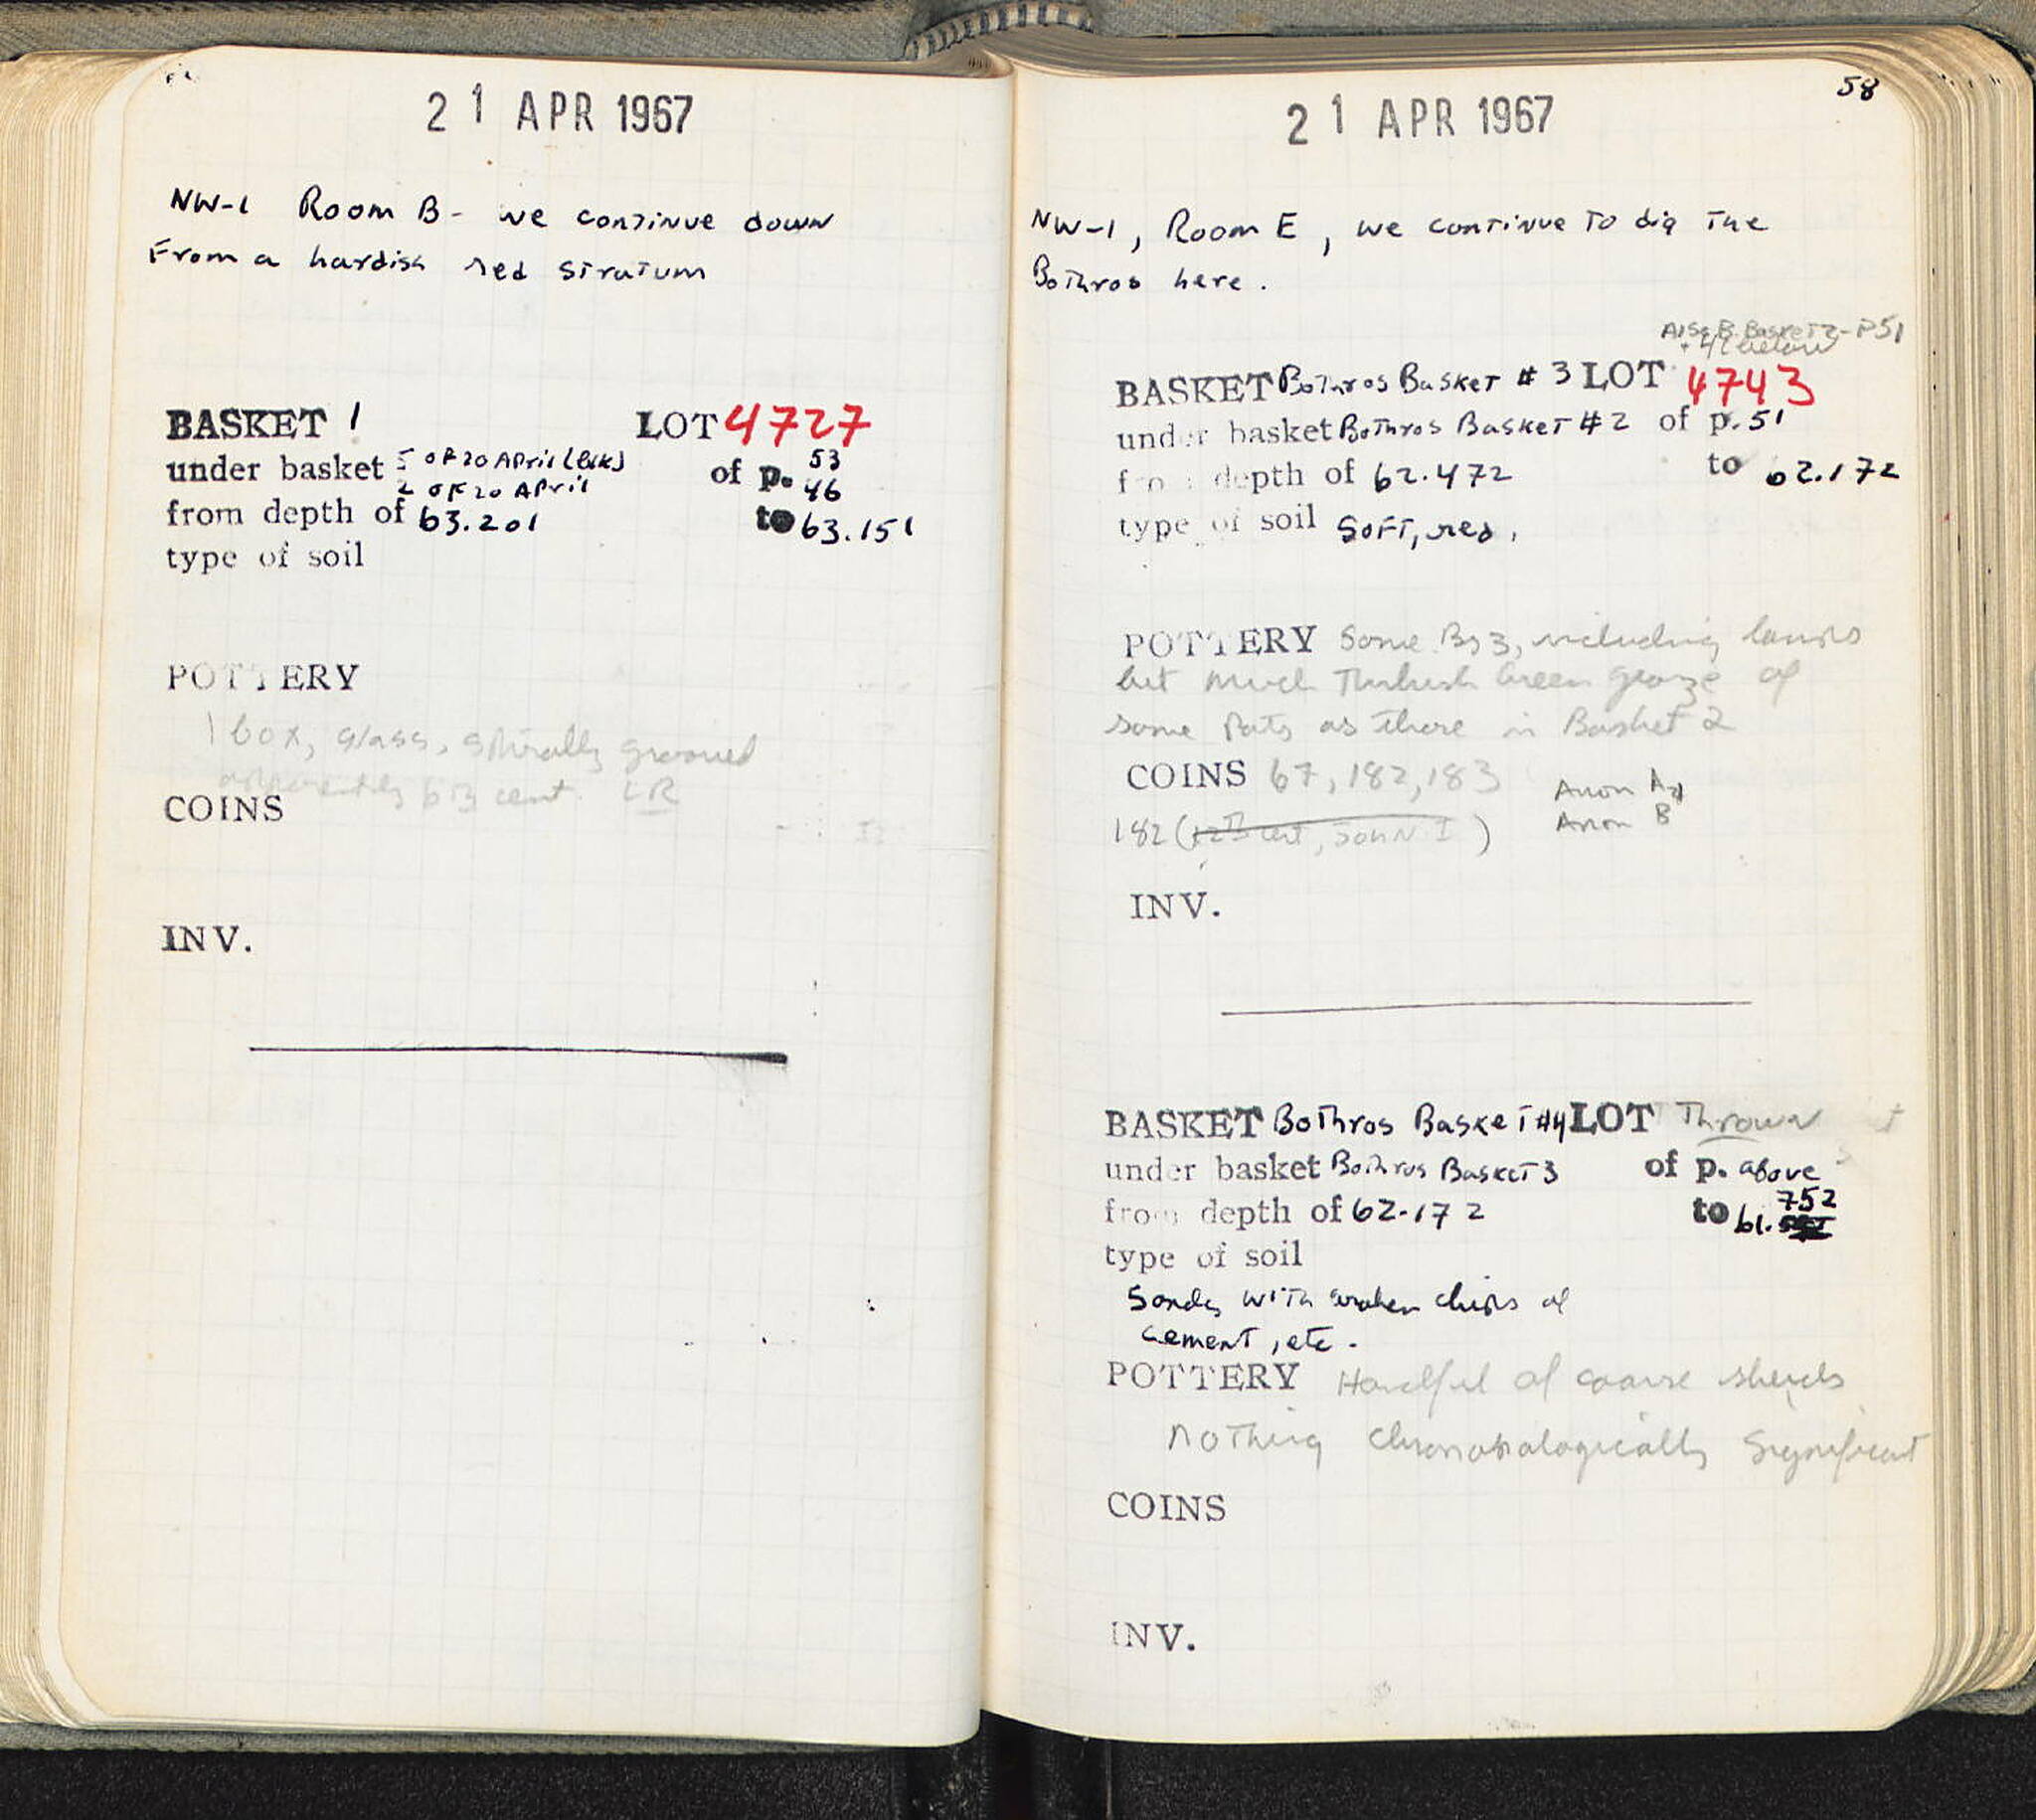 21 APR 1967
NW-1 Room B - we continue down
From a hardish red stratum
BASKET 1 LOT 4727
under basket 5 of 20 April (blk) of p. 53
2 of 20 April 46
from depth of 63.201 to 63.151
type of soil
POTTERY
1 box, glass, spirally grooved
apparently 6th cent. LR
COINS
INV.
58
21 APR 1967
NW-1, Room E, we continue to dig the
Bothros here.
Also B. Basket 2 - P51
+ 4 below
BASKET Bothros Basket # 3 LOT 4743
under basket Bothros Basket # 2 of p. 51
from depth of 62.472 to 62.172
type of soil Soft, red.
POTTERY Some Byz, including
but much Turkish Green glaze of
same pots as those in Basket 2
COINS 67, 182, 183 Anon A
182 (12th cent, John I) Anon B
INV.
BASKET Bothros Basket #4 LOT Thrown
under basket Bothros Basket 3 of p. above
from depth of 62.172 to 61.752
type of soil
Sandy with broken chips of
cement, etc.
POTTERY Handful of coarse sherds
nothing chronologically significant
COINS
INV.